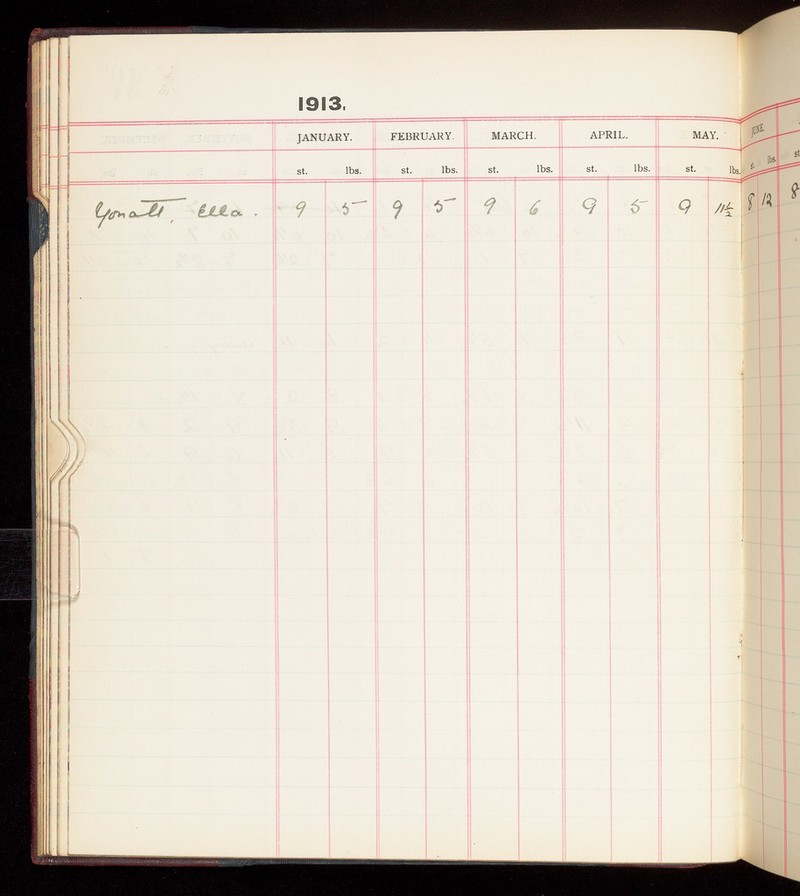 1913.
JANUARY. FEBRUARY. MARCH. APRIL. MAY. JUNE.
st. lbs. st. lbs. st. lbs. st. lbs. st. lbs. st. lbs. st
Yonatt, Ella. 9 5 9 5 9 6 9 5 9 11½ 8 12 8